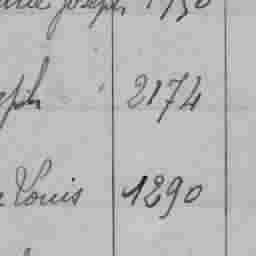 Joseph 1730
eph 2174
Louis 1290